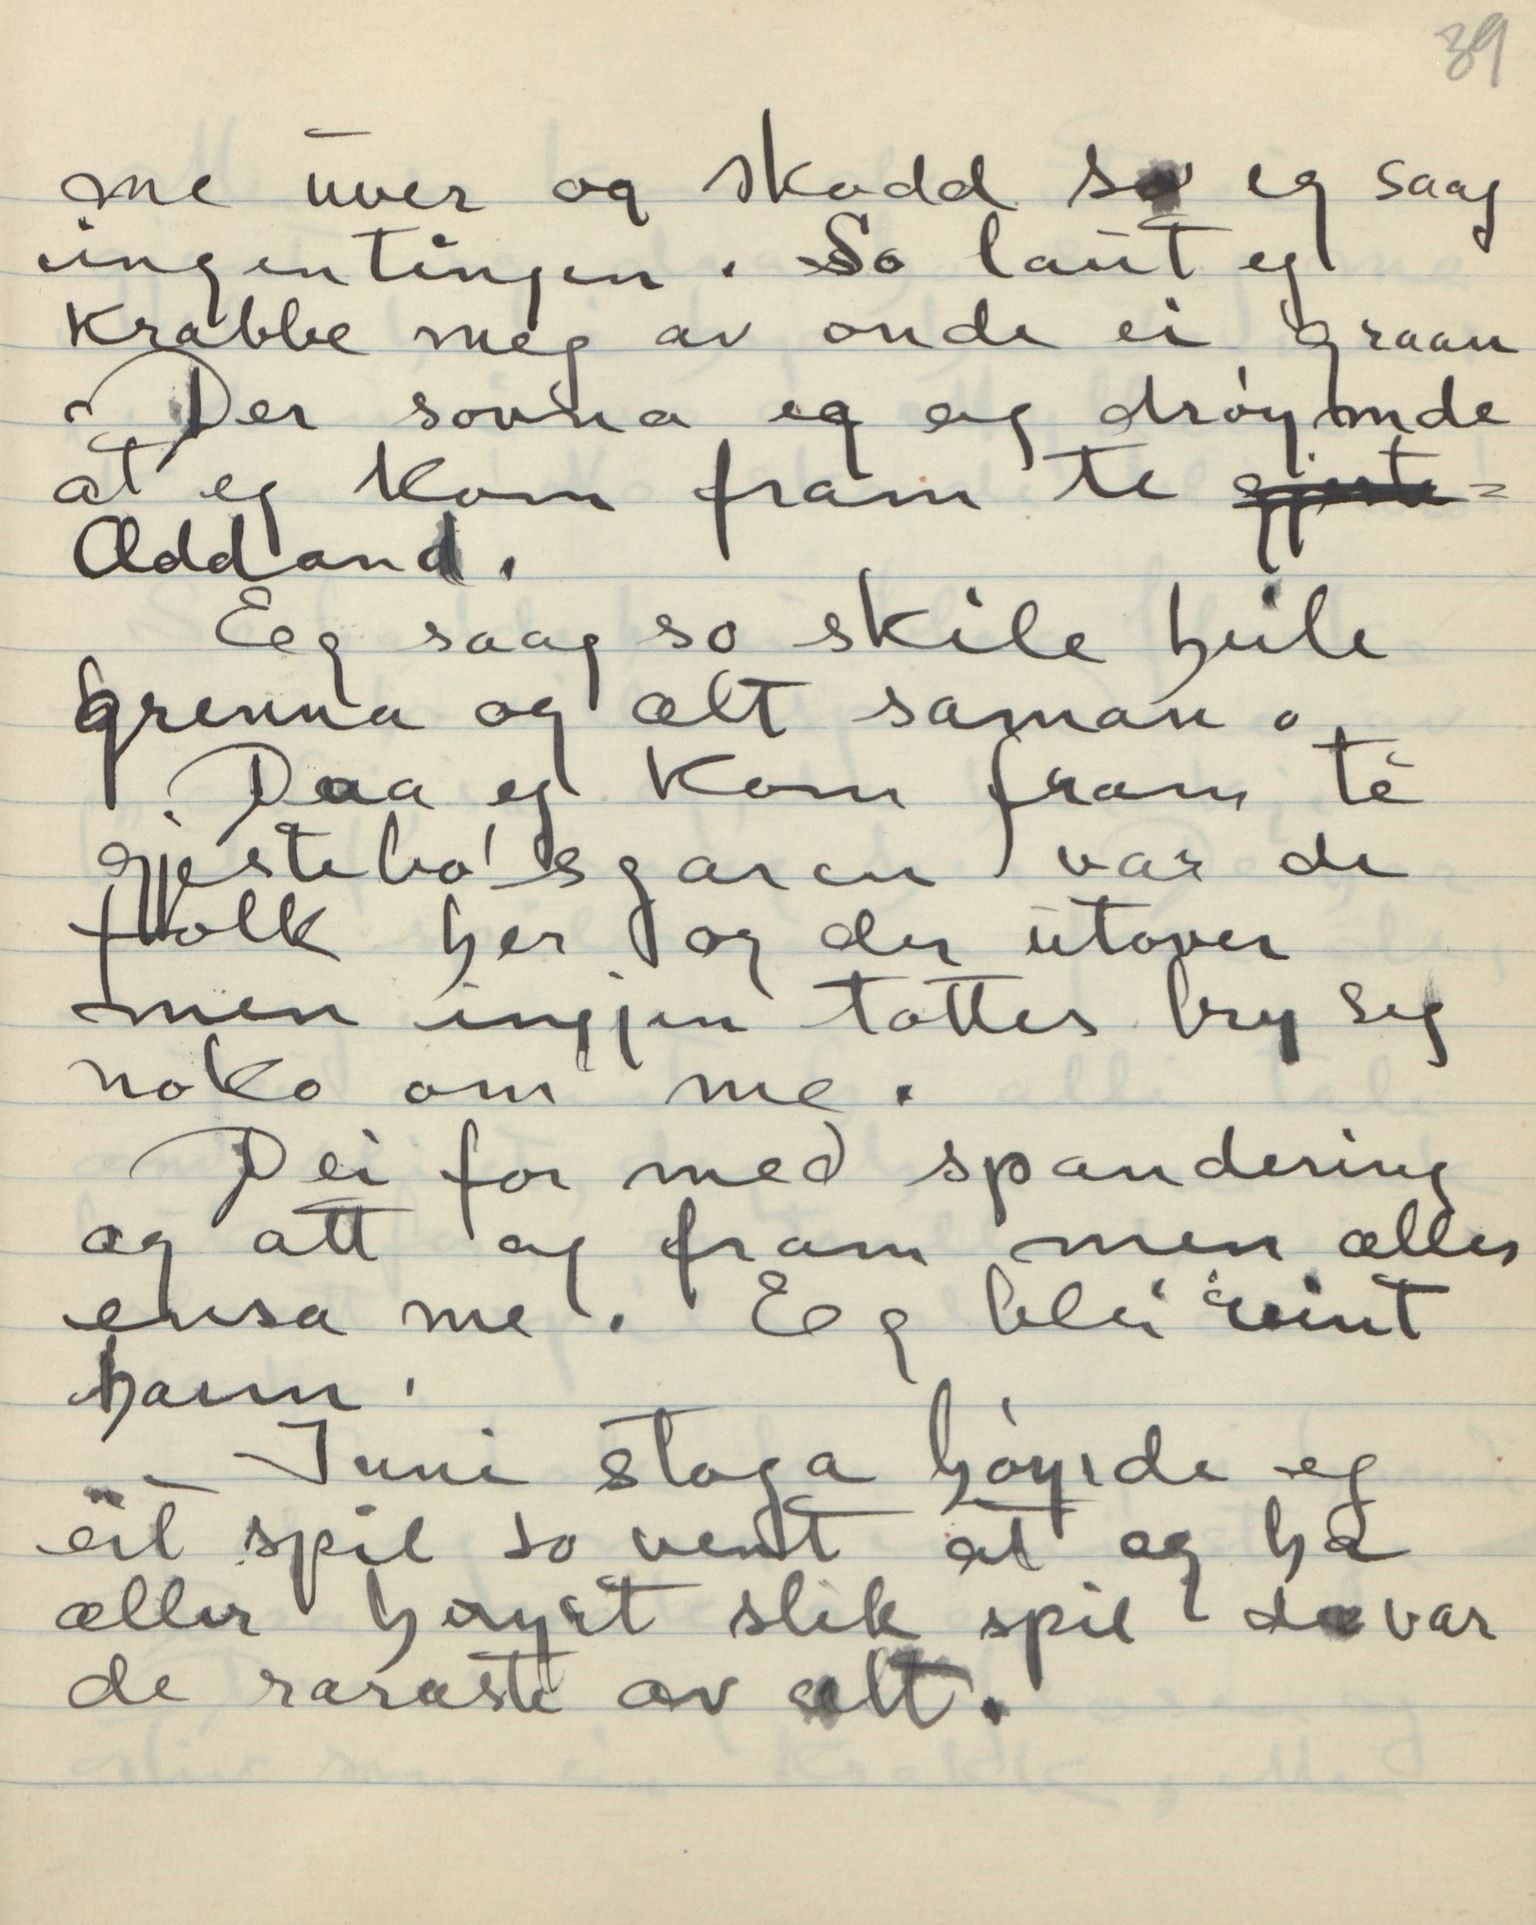 39
me uver og skodd so eg saag
ingentingen. So laut eg
krabbe meg av onde ei graan
Der sovna eg og drøymde
at eg kom fram te gjeste=
Oddland.
Eeg saag so skile heile
grenna og ælt saman.
Daa eg kom fram te
gjestebø'sgaren var de
folk her og der utover
men ingjen tottes bry seg
noko om me.
Dei for med spandering
og att og fram men æller
ensa me. Eeg blei reint
harm.
Inni stoga høyrde eg
eit spil so vent at eg ha
æller høyrt slik spil de var
de raraste av ælt.